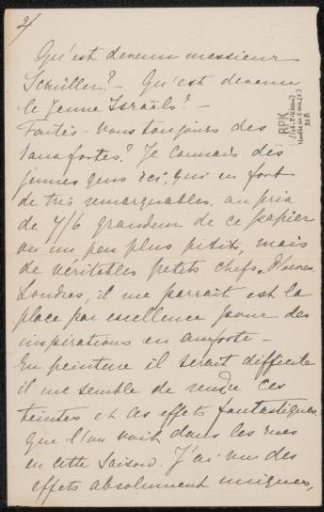 2/
Qu'est devenu messieur
Schüller? - Qu'est devenu
le jeune Israëls? -
Faites-vous toujours des
eauxfortes? Je connais des
jeunes gens ici, qui en font
de très remarquables, au prix
de 7/6 grandeur de ce papier
ou un peu plus petits, mais
de véritables petits chefs d'œuvres.
Londres, il me parraît est la
place par excellence pour des
inspirations en eauforte -
En peinture il serait difficile
il me semble de rendre ces
teintes et ces effets fantastiques,
que l'on voit dans les rues
en cette saison. J'ai vu des
effets absolument uniques,
RPK